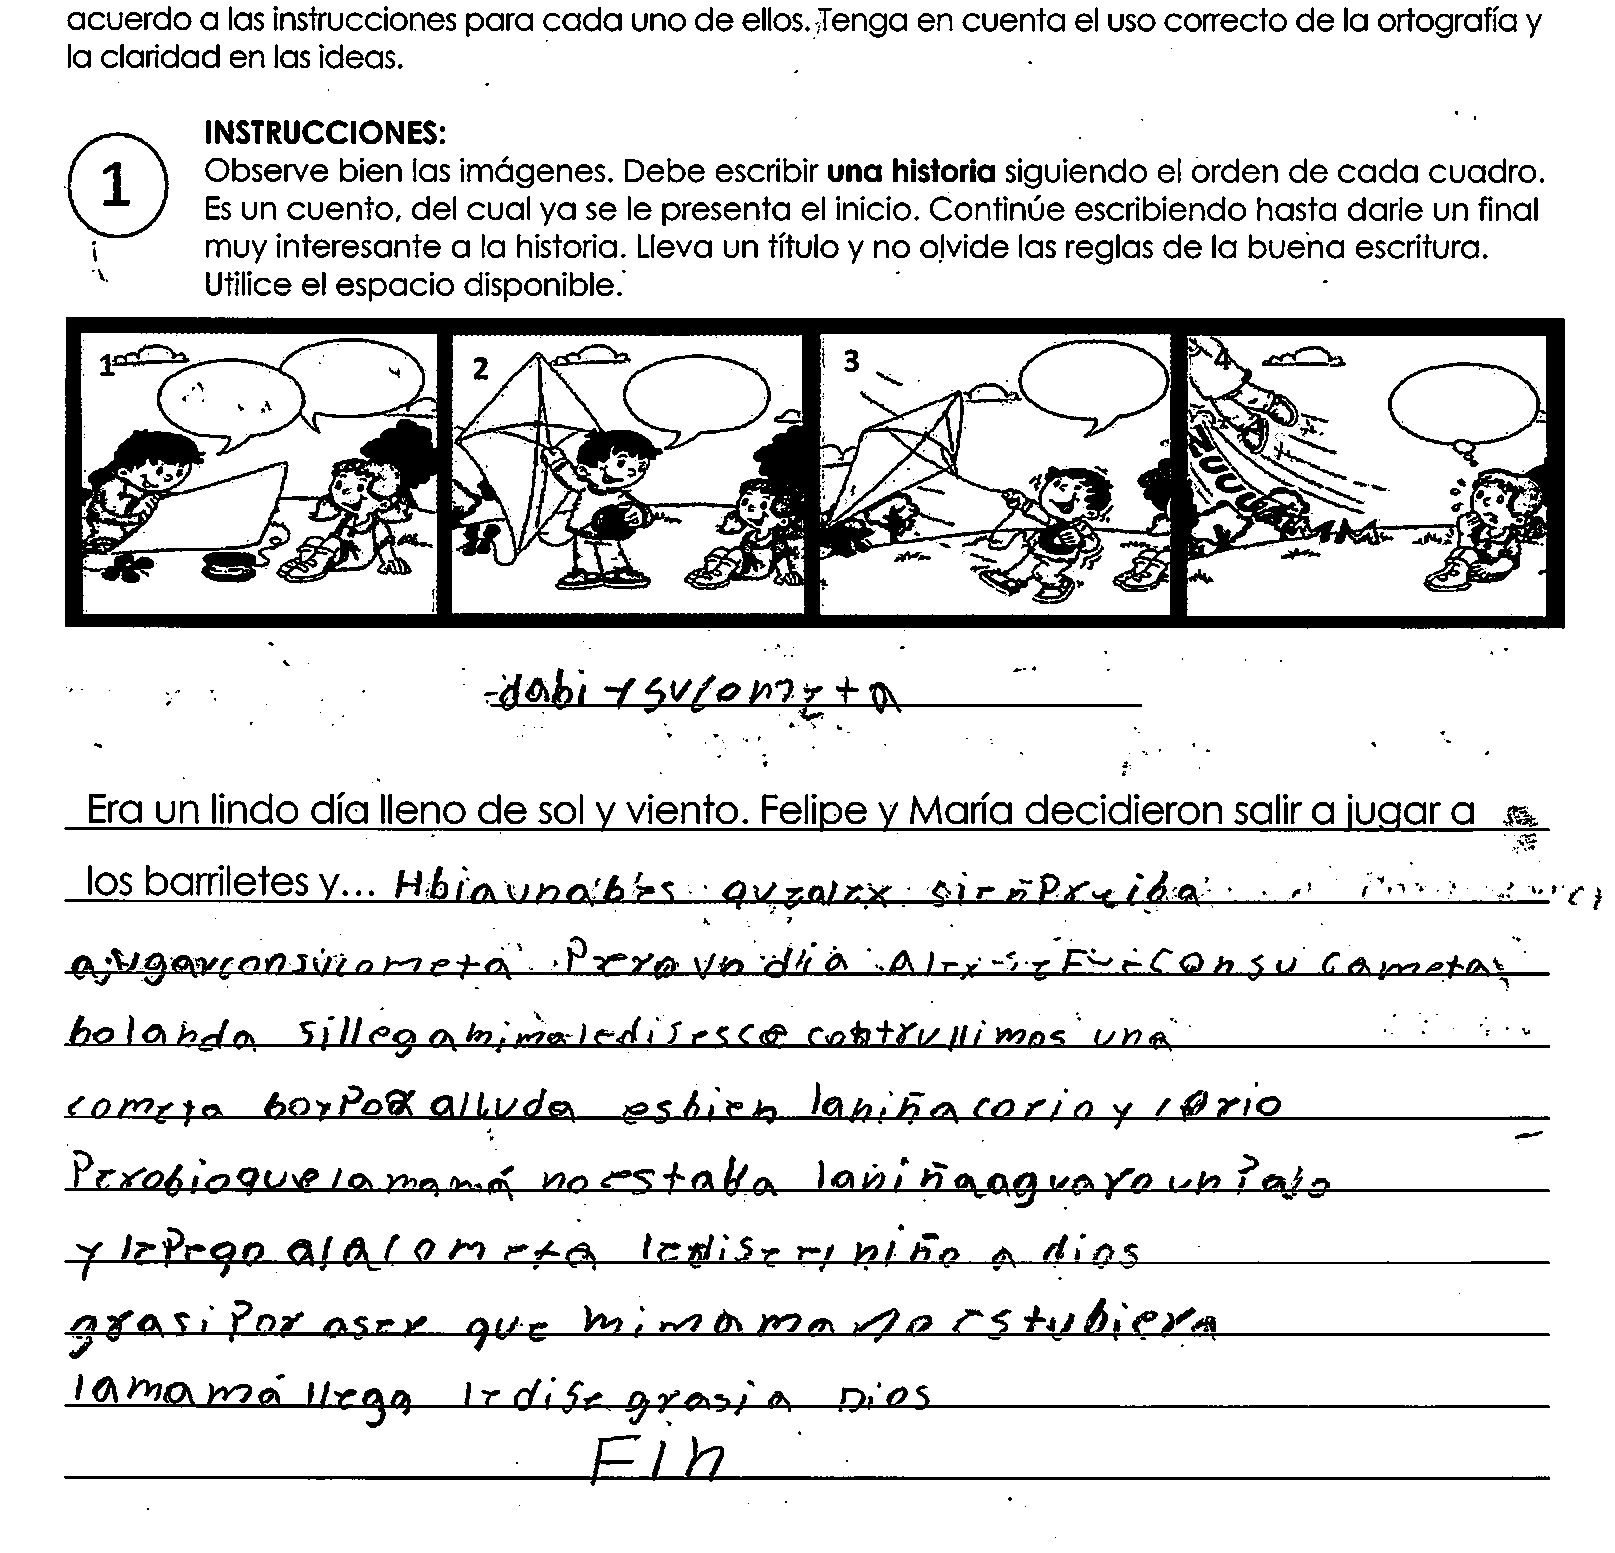 acuerdo a las instrucciones para cada uno de ellos. Tenga en cuenta el uso correcto de la ortografía y
la claridad en las ideas.
1
INSTRUCCIONES:
Observe bien las imágenes. Debe escribir una historia siguiendo el orden de cada cuadro.
Es un cuento, del cual ya se le presenta el inicio. Continúe escribiendo hasta darle un final
muy interesante a la historia. Lleva un título y no olvide las reglas de la buena escritura.
Utilice el espacio disponible.
1 2 3 4
ZUUUUM
dabi y su cometa
Era un lindo día lleno de sol y viento. Felipe y María decidieron salir a jugar a
los barriletes y... Hbia una bes que alex
a jugar con su cometa Pero un dia Alex se Fue con su cometa
bolando si llega mi mama le dise contrullimos una
cometa bor Por alluda es bien la niña corio y corio
Pero bio que la mamá no estaba la niña aguaro un Palo
y le Pego a la cometa le dise el niño a dios
grasi Por aser que mi mama no estubiera
la mamá llega le dise grasia Dios
Fin